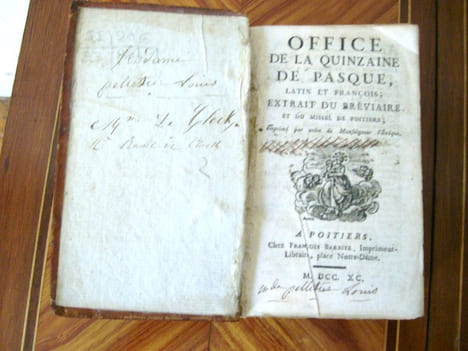 Madame
pelletier Louis
Mme Le Glock
2
OFFICE
DE LA QUINZAINE
DE PASQUE,
LATIN ET FRANÇOIS;
EXTRAIT DU BRÉVIAIRE,
ET DU MISSEL DE POITIERS;
Imprimé par ordre de Monseigneur l'Evêque.
A POITIERS,
Chez FRANÇOIS BARBIER, Imprimeur-
Libraire, place Notre-Dame.
M. DCC. XC.
pelletier Louis